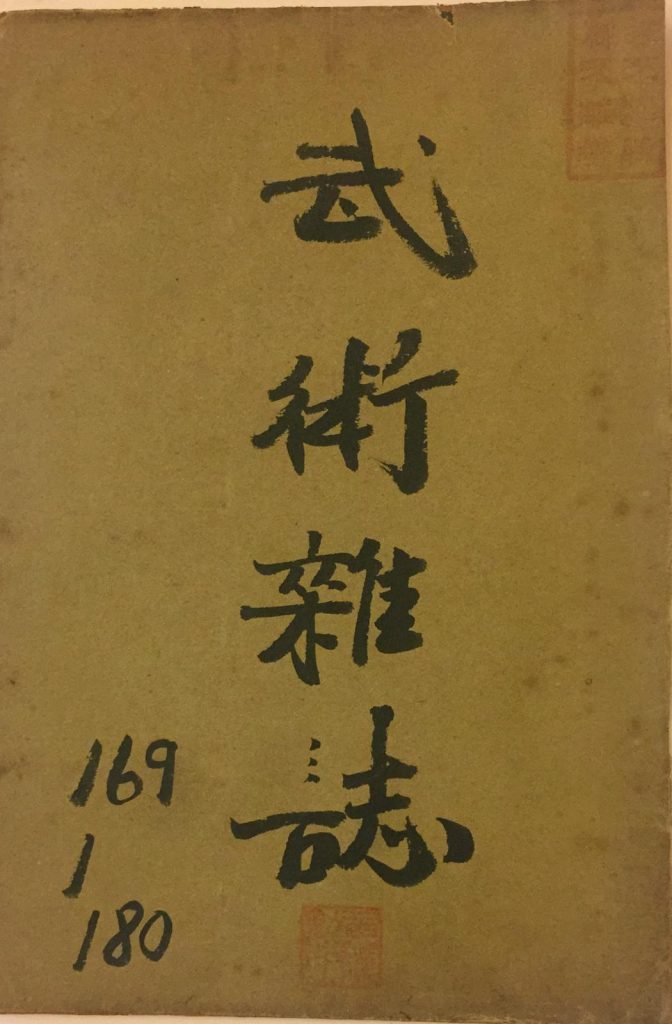 武術雜誌
169
1
180